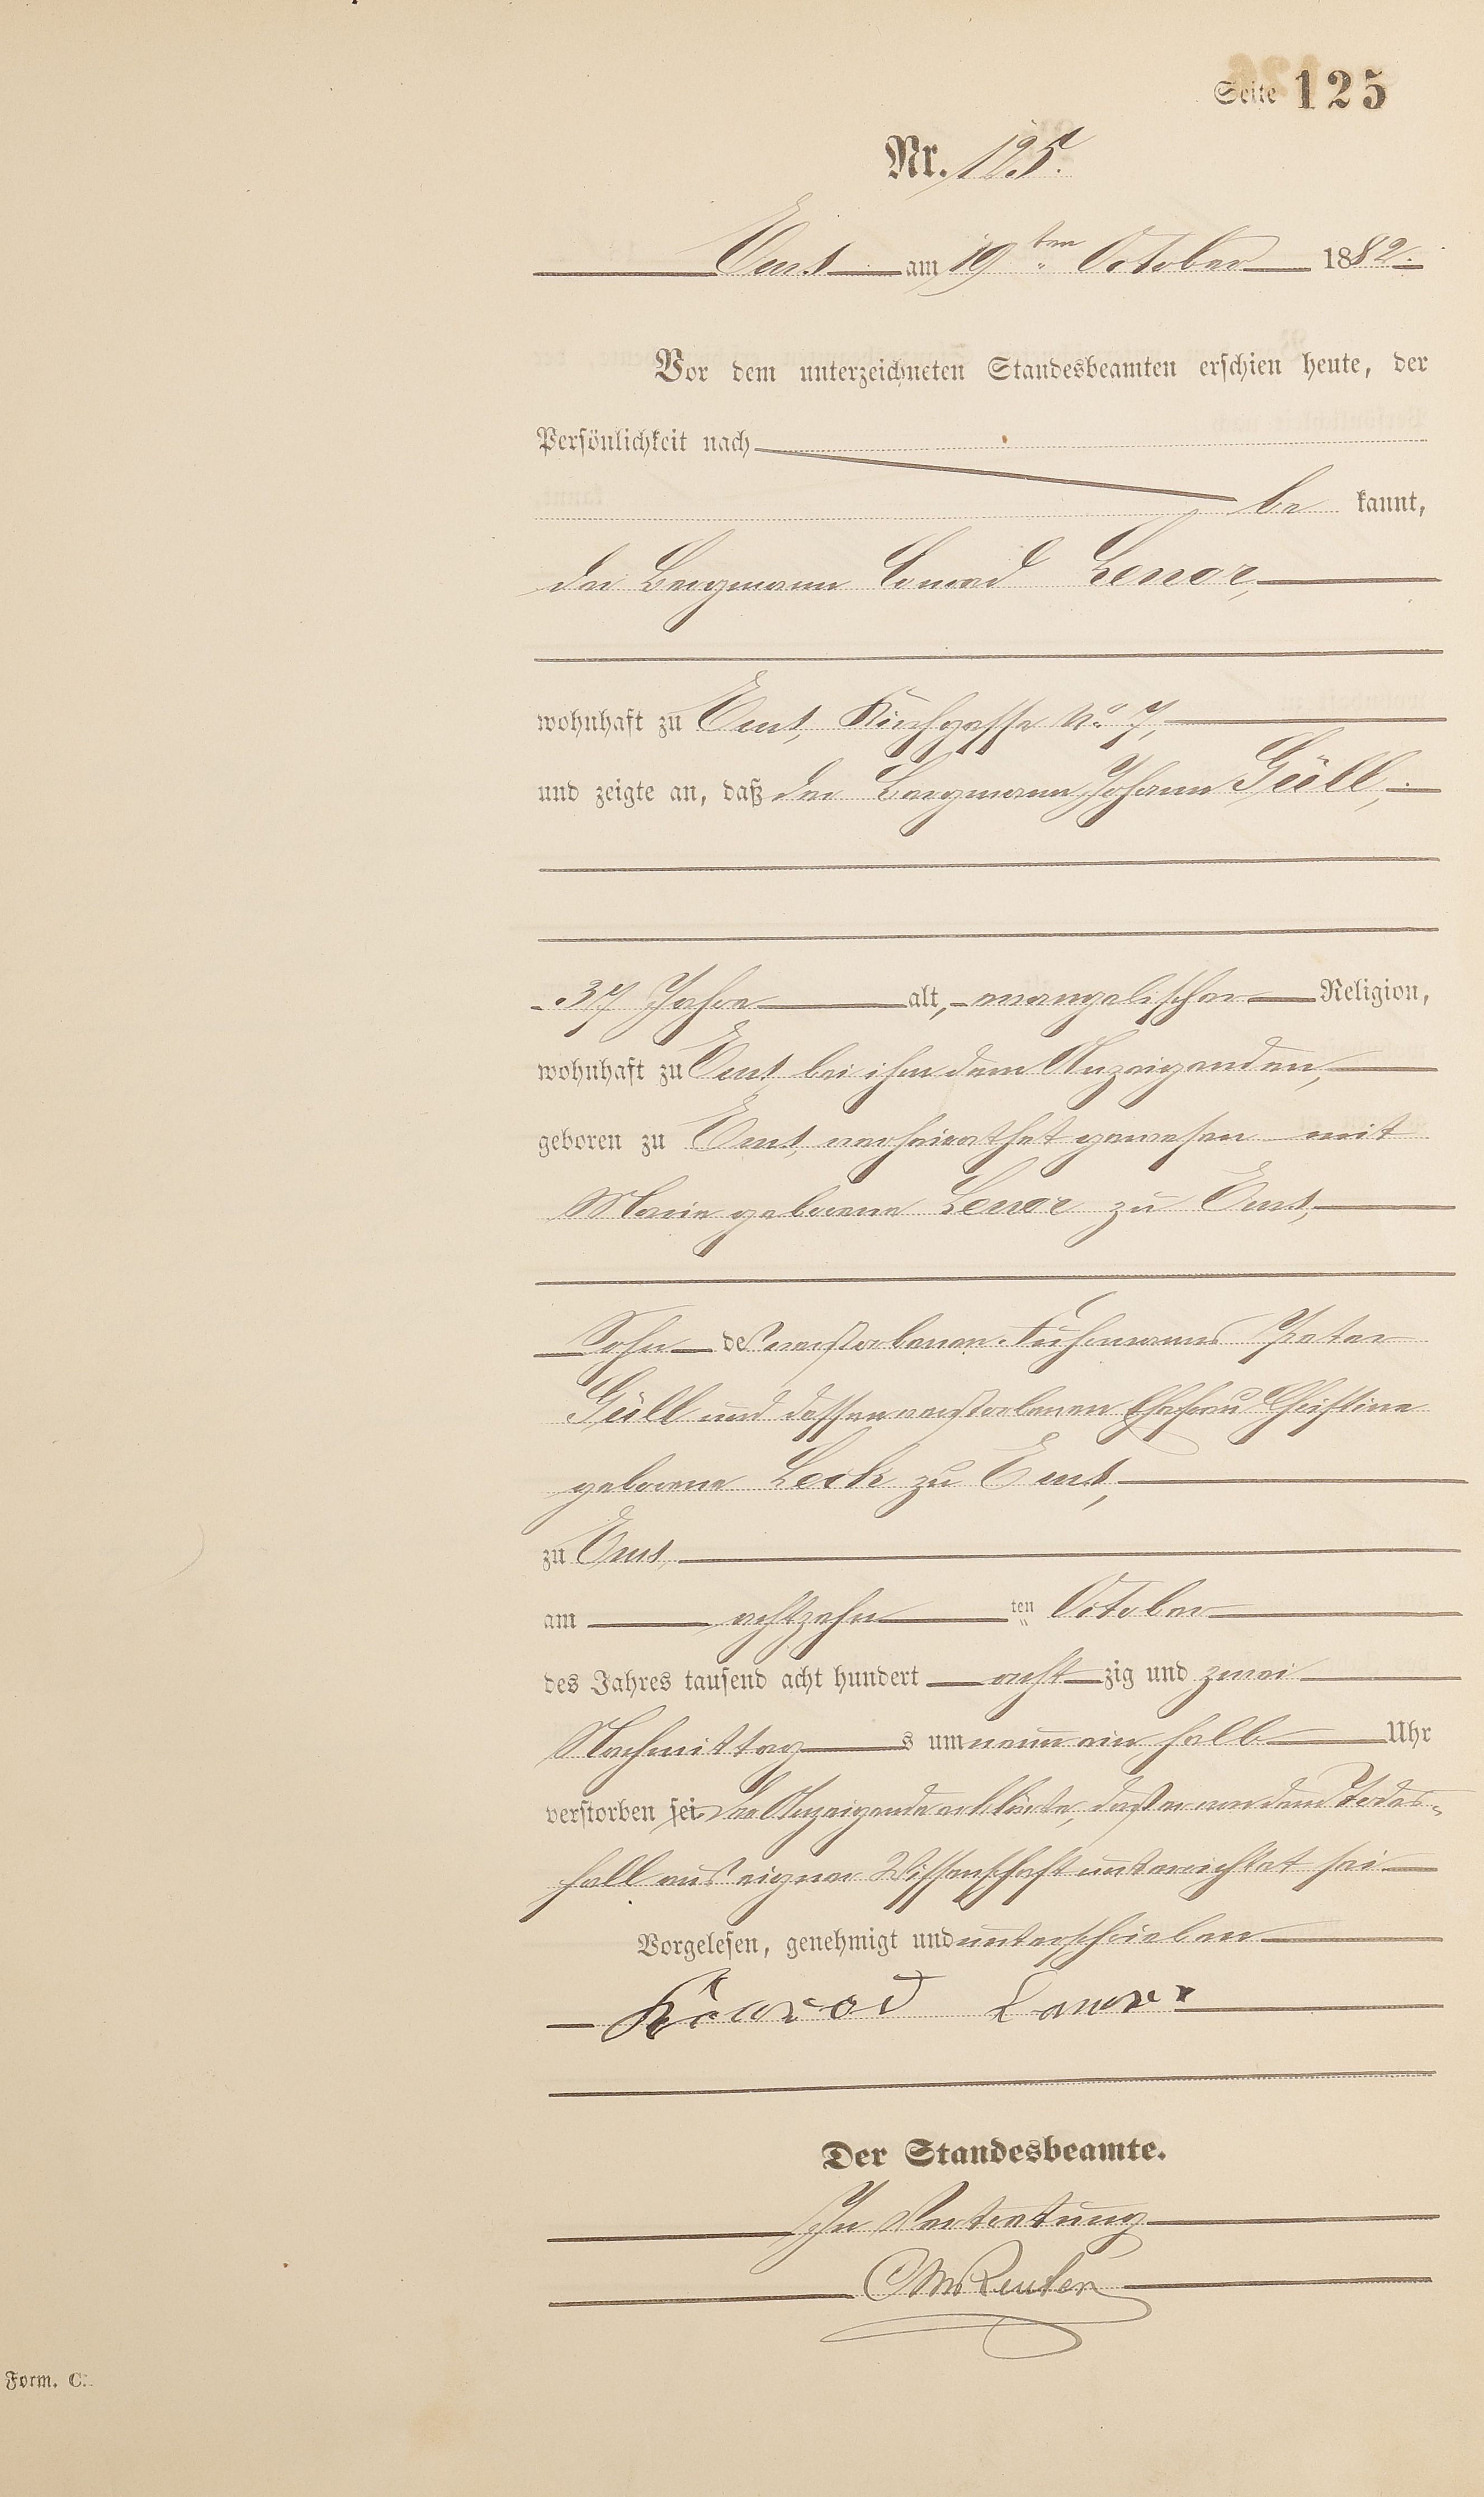 Seite 125
Nr. 125.
Ems am 19ten October 1882.
Vor dem unterzeichneten Standesbeamten erschien heute, der
Persönlichkeit nach
be kannt,
der Bergmann Conrad Lenor,
wohnhaft zu Ems, Kirchgasse No. 7,
und zeigte an, daß der Bergmann Johann Güll,
37 Jahre alt, evangelischer Religion,
wohnhaft zu Ems bei ihm dem Anzeigenden,
geboren zu Ems, verheirathet gewesen mit
Marie geborene Lenor zu Ems,
Sohn des verstorbenen Fuhrmanns Peter
Güll und dessen verstorbenen Ehefrau Christine
geborene Lock zu Ems,
zu Ems,
am achtzehn ten October
des Jahres tausend acht hundert acht zig und zwei
Nachmittag s um neun ein halb Uhr
verstorben sei. Der Anzeigende erklärte, daß er von dem Todes-
fall aus eigner Wissenschaft unterrichtet sei
Vorgelesen, genehmigt und unterschrieben
Konrad Lenor
Der Standesbeamte.
In Vertretung
Reuter
Form. C.